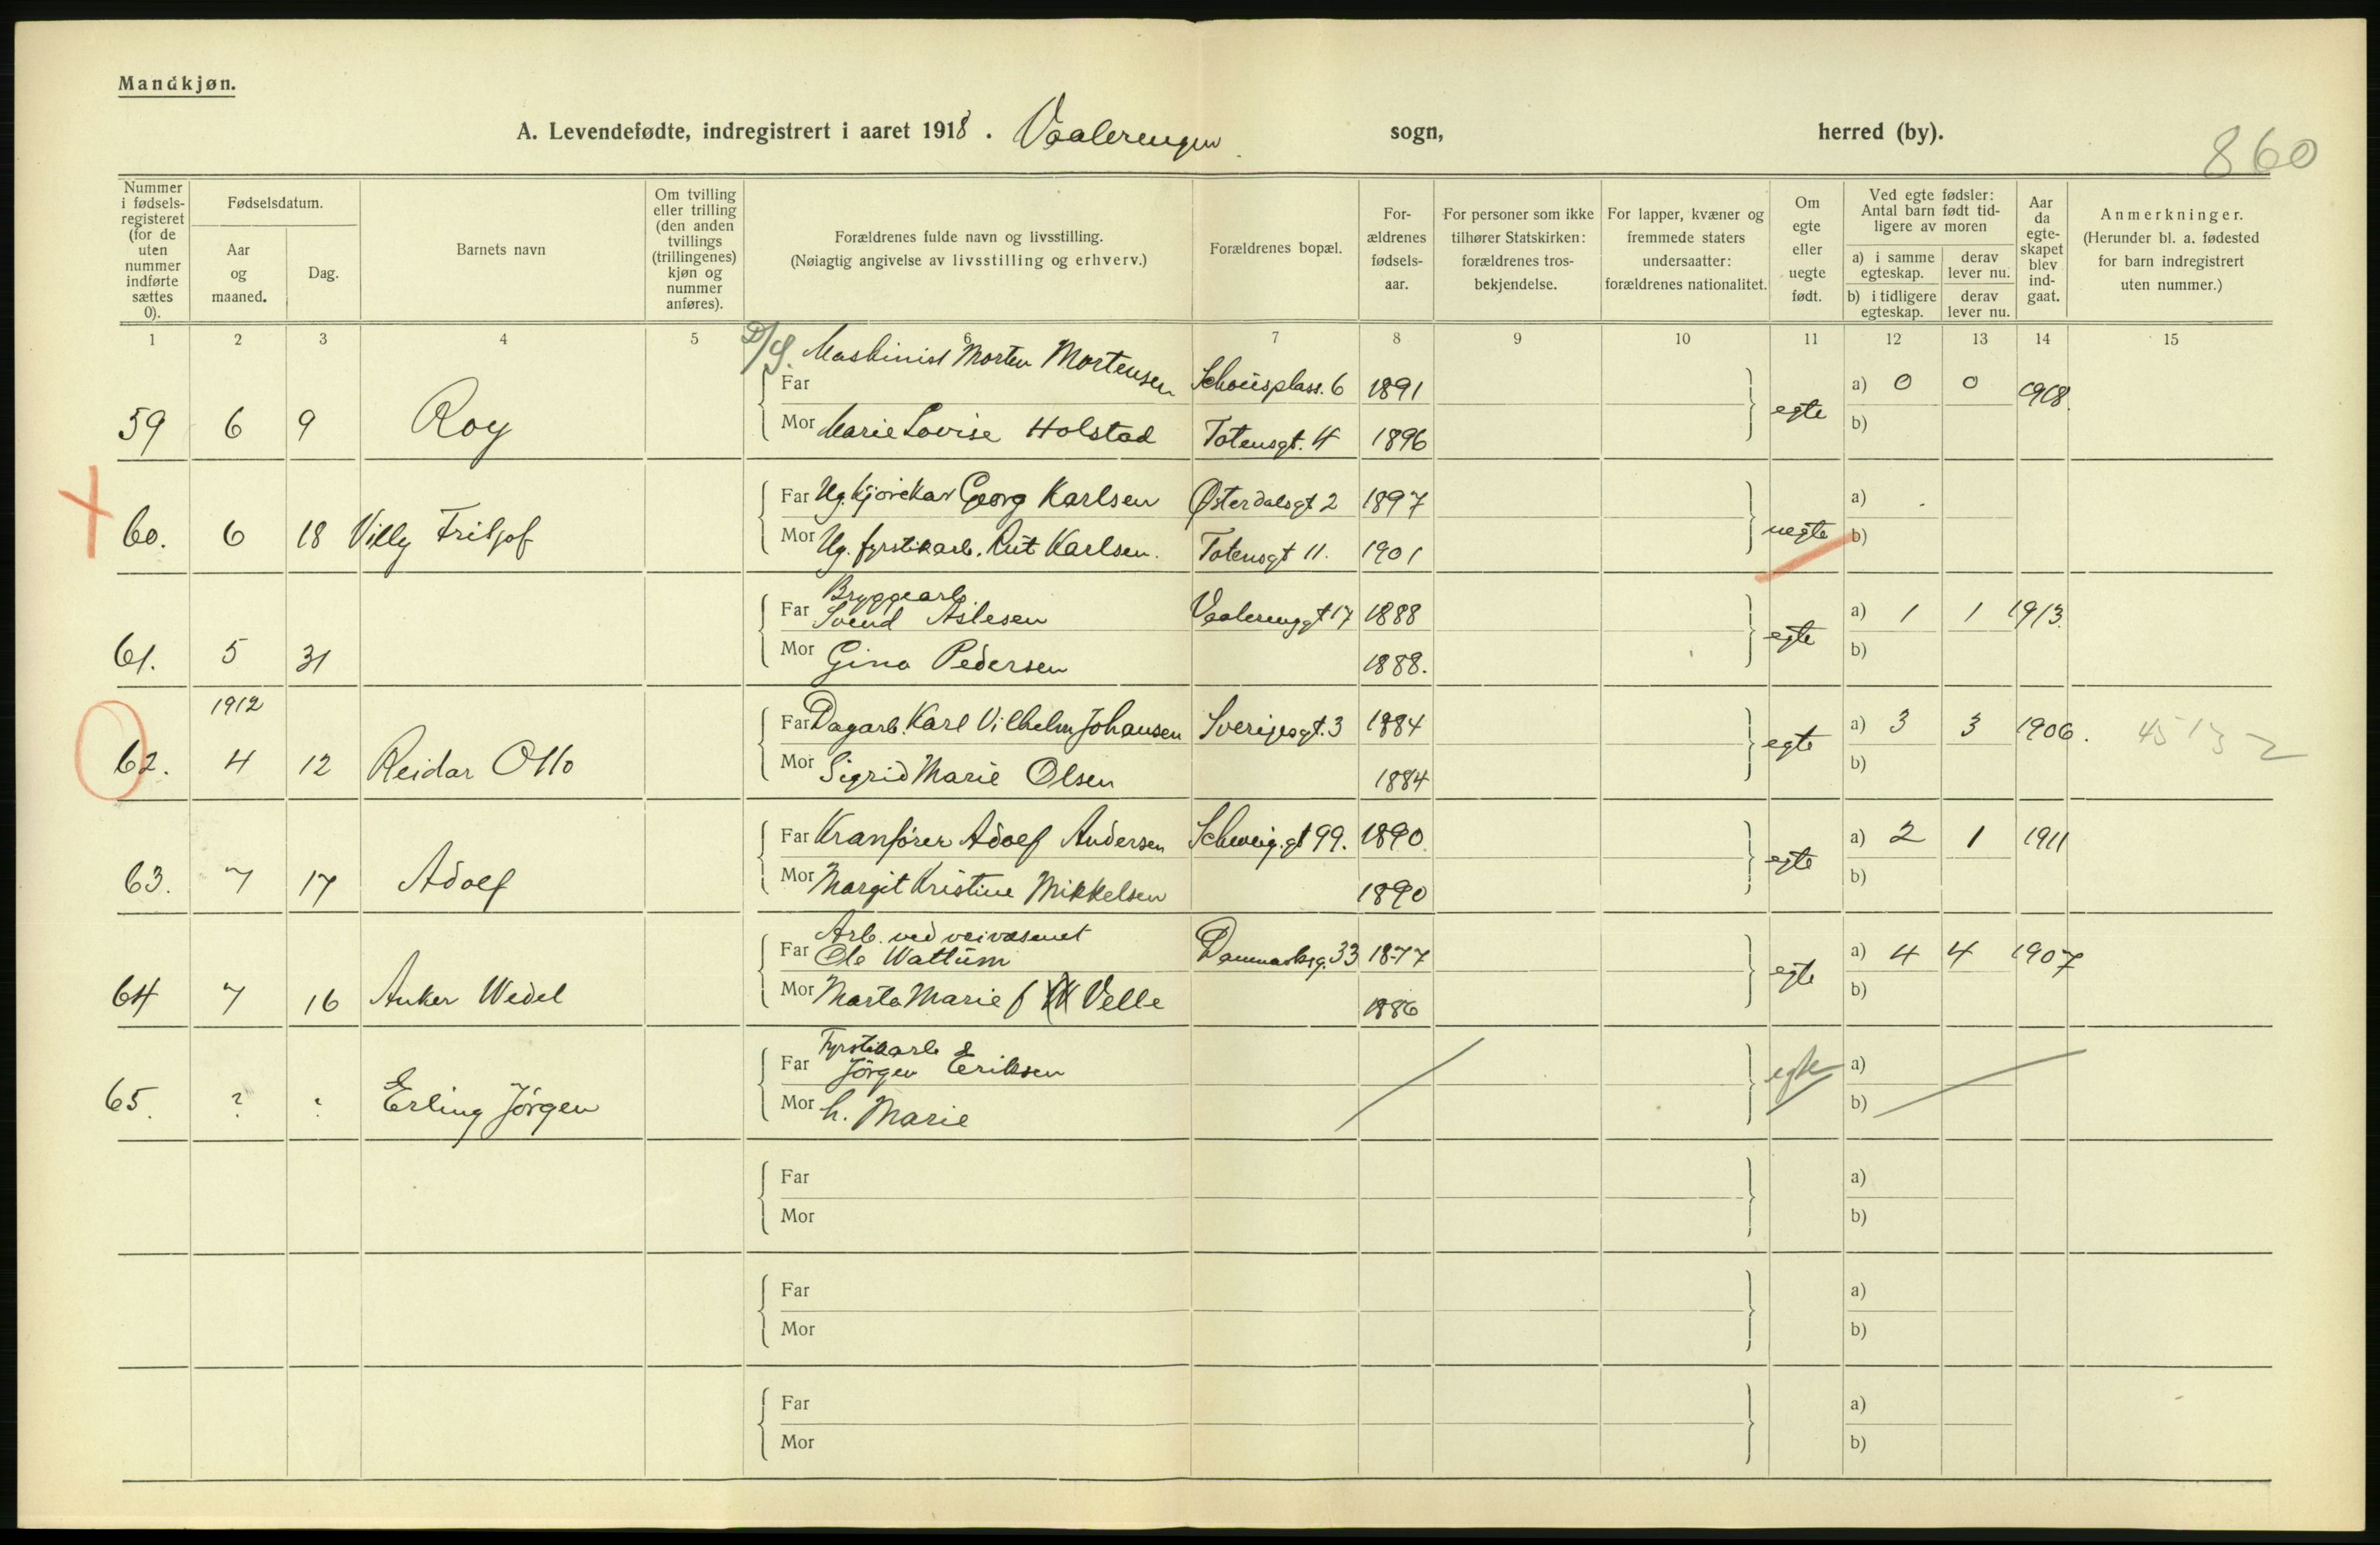 Mandkjøn.
A. Levendefødte, indregistrert i aaret 1918. Vaalerengen sogn, herred (by).
860
Nummer i fødselsregisteret (for de uten nummer indførte sættes 0).
Fødselsdatum.
Aar og maaned.
Dag.
Barnets navn
Om tvilling eller trilling (den anden tvillings (trillingenes) kjøn og nummer anføres).
Forældrenes fulde navn og livsstilling.
(Nøiagtig angivelse av livsstilling og erhverv.)
Forældrenes bopæl.
Forældrenes fødselsaar.
For personer som ikke tilhører Statskirken: forældrenes trosbekjendelse.
For lapper, kvæner og fremmede staters undersaatter: forældrenes nationalitet.
Om egte eller uegte født.
Ved egte fødsler: Antal barn født tidligere av moren
a) i samme egteskap. derav lever nu.
b) i tidligere egteskap. derav lever nu.
Aar da egteskapet blev indgaat.
Anmerkninger.
(Herunder bl. a. fødested for barn indregistrert uten nummer.)
1 2 3 4 5 6 7 8 9 10 11 12 13 14 15
D/S. Maskinist Morten Mortensen
Far Schousplass. 6 1891 a) 0 0 1918.
59 6 9 Roy Mor Marie Lovise Holstad Totensgt. 4 1896 egte b)
Far Ug. kjørekar Georg Karlsen Østerdalsgt 2 1897 a)
60. 6 18 Villy Fritjof Mor Ug. fyrstikarb. Rut Karlsen. Totensgt 11. 1901 uegte b)
Bryggearb.
Far Svend Aslesen Vaalerenggt 17 1888 a) 1 1 1913.
61. 5 31 Mor Gina Pedersen 1888. egte b)
1912
Far Dagarb. Karl Vilhelm Johansen Sverigesgt. 3 1884 a) 3 3 1906. 45132
62. 4 12 Reidar Otto Mor Sigrid Marie Olsen 1884 egte b)
Far Kranfører Adolf Andersen Schweig. gt 99. 1890. a) 2 1 1911
63. 7 17 Adolf Mor Margit Kristine Mikkelsen 1890 egte b)
Arb. ved veivæsenet
Far Ole Wattum Danmarksg. 33 1877 a) 4 4 1907
64 7 16 Anker Wedel Mor Marta Marie f Velle 1886 egte b)
Fyrstikarb
Far Jørgen Eriksen egte a)
65. ? ? Erling Jørgen Mor h. Marie b)
Far a)
Mor b)
Far a)
Mor b)
Far a)
Mor b)